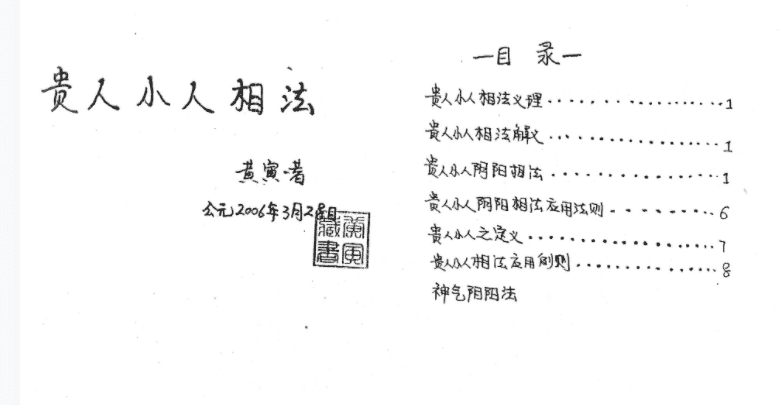 贵人小人相法
黄寅·著
公元2006年3月28日
黄寅
藏書
—目 录—
贵人小人相法义理....................1
贵人小人相法解义....................1
贵人小人阴阳相法....................1
贵人小人阴阳相法应用法则.........6
贵人小人之定义....................7
贵人小人相法应用例则...............8
神气阴阳法